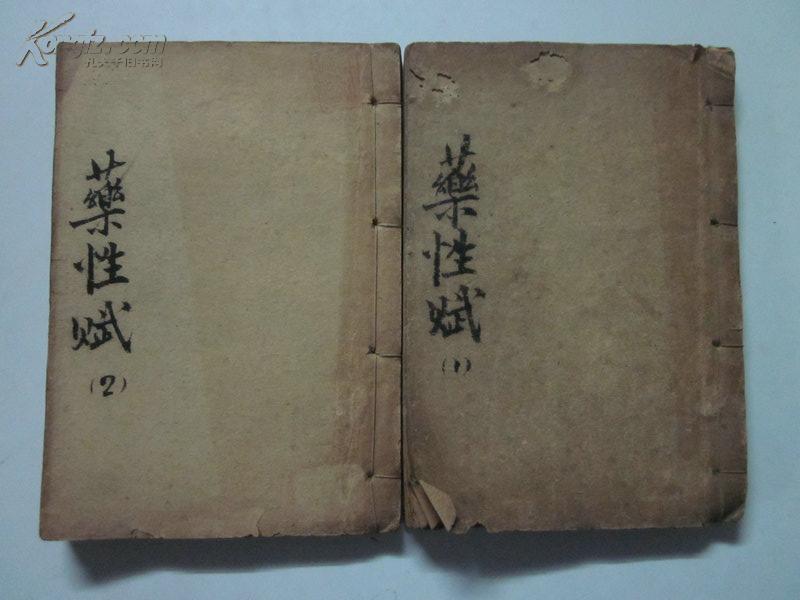 Kongfz.com
孔夫子旧书网
藥性赋
(2)
藥性赋
(1)